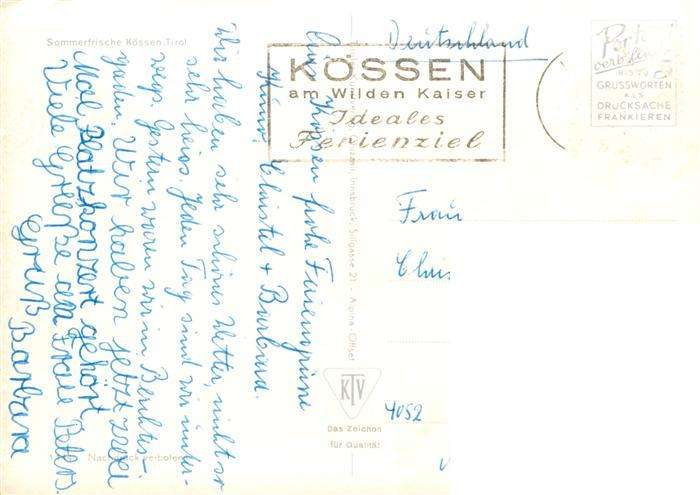 Sommerfrische Kössen, Tirol
Aus Kössen frohe Feriengrüße
Christel + Burkard.
Wir haben sehr schönes Wetter, nicht so
sehr heiss. Jeden Tag sind wir unter-
wegs. Gestern waren wir in Berchtes-
gaden. Wir haben jetzt zwei
Mal Platzkonzert gehört
Viele Grüße an Frau Peters.
Gruß Barbara
Nachdruck verboten
Innsbruck, Sillgasse 21 - Alpina-Offset
KTV
Das Zeichen
für Qualität
Deutschland
KÖSSEN
am Wilden Kaiser
Ideales
Ferienziel
BIS ZU
GRUSSWORTEN
ALS
DRUCKSACHE
FRANKIEREN
Frau
Chris
4052